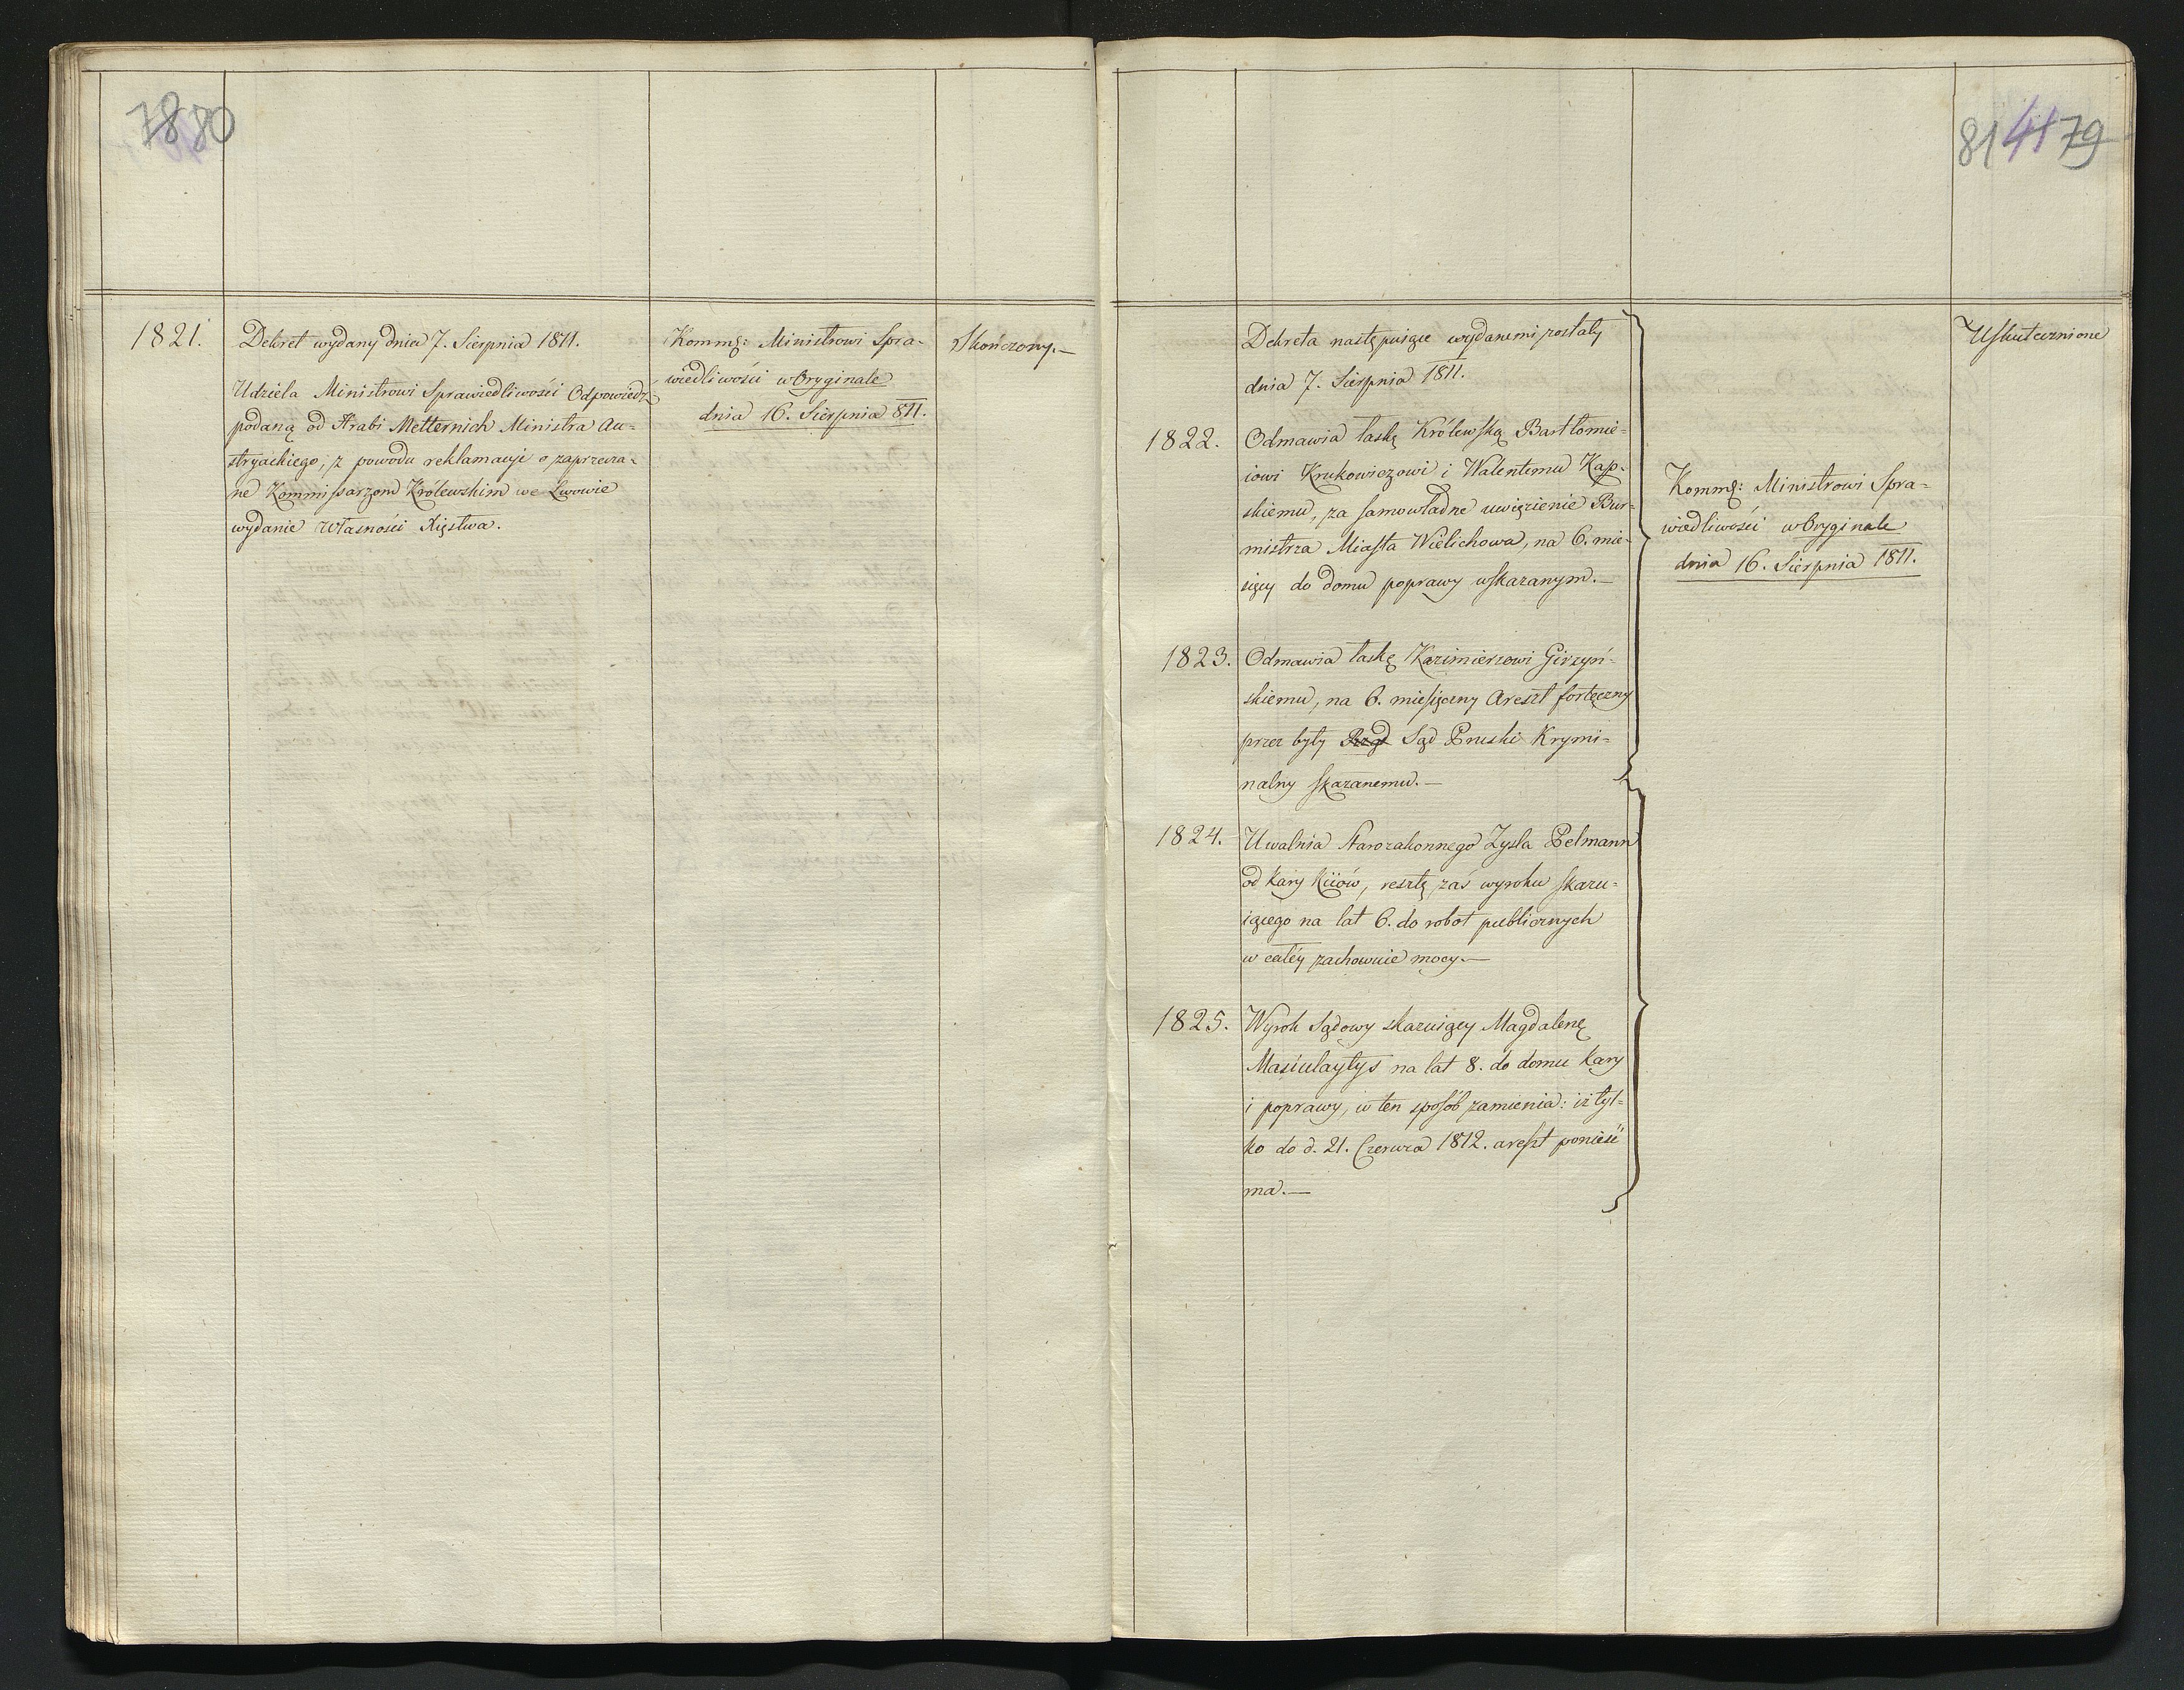 78 80
1821.
Dekret wydany dnia 7. Sierpnia 1811.
Udziela Ministrowi Sprawiedliwości Odpowiedź
podaną od Hrabi Metternich Ministra Au=
stryackiego, z powodu reklamacyi o zaprzecza=
ne Kommissarzom Królewskim we Lwowie
wydanie Własności Xięstwa.
Kommę: Ministrowi Spra=
wiedliwości w Oryginale
dnia 16. Sierpnia 811.
Skończony.—
81 41 79
Dekreta następuiące wydanemi zostały
dnia 7. Sierpnia 1811.
1822.
Odmawia łaskę Królewską Bartłomie=
iowi Krukowiczowi i Walentemu Kap=
skiemu, za samowładne uwięzienie Bur=
mistrza Miasta Wielichowa, na 6. mie=
sięcy do domu poprawy wskazanym.—
1823.
Odmawia łaskę Kazimierzowi Girzyń=
skiemu, na 6. miesięczny Areszt fortęczny
przez były Rząd Sąd Pruski Krymi=
nalny skazanemu.—
1824.
Uwalnia Starozakonnego Zysla Pelmann
od kary Kiiów, resztę zaś wyroku skazu=
iącego na lat 6. do robot publicznych
w całéy zachowuie mocy.—
1825.
Wyrok Sądowy skazuiący Magdalenę
Masiulaytys na lat 8. do domu kary
i poprawy, w ten sposób zamienia: iż tyl=
ko do d. 21. Czerwca 1812. areszt ponieść
ma.—
Kommę: Ministrowi Spra=
wiedliwości w Oryginale
dnia 16. Sierpnia 1811.
Uskutecznione